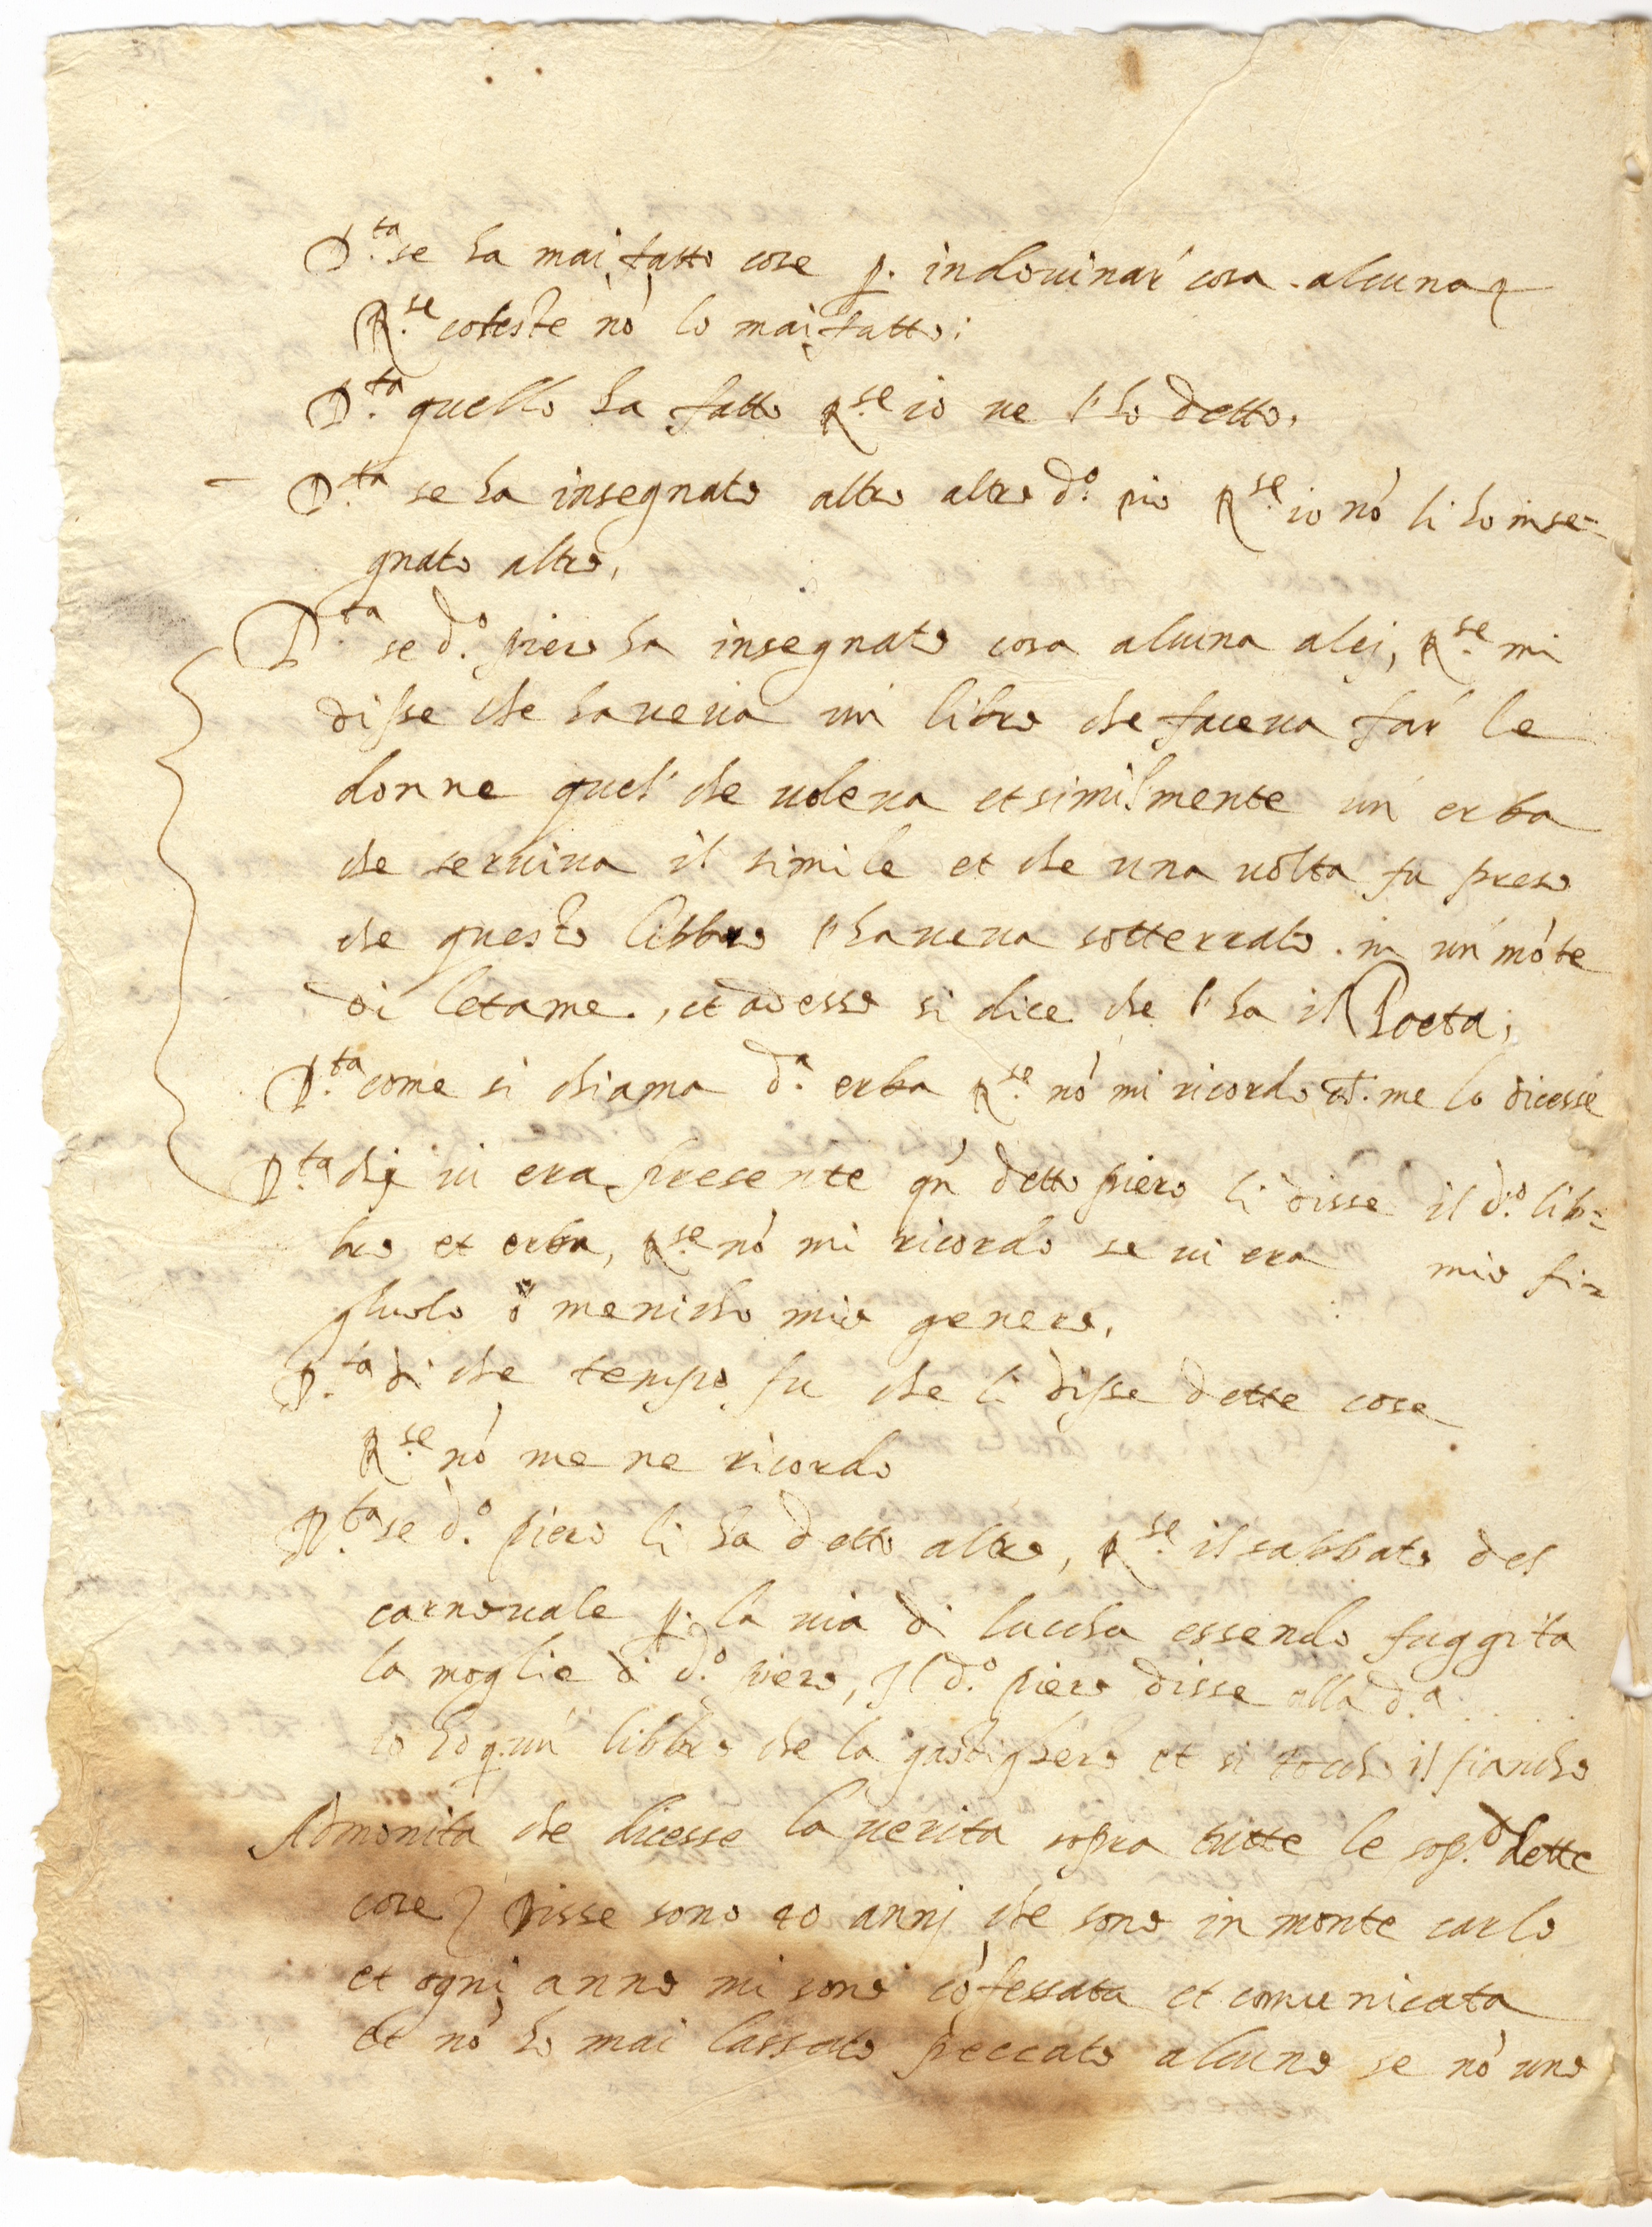 D.ta se ha mai fatto cose p. indovinar' cosa alcuna
R.se coteste nò l'ho mai fatto:
D.ta quello ha fatto R.se io ve l'ho detto,
D.ta se ha insegnato altro altro d.o più R.se io nò li ho inse-
gnato altro,
D.ta se d.o piero ha insegnato cosa alcuna a lej, R.se mi
disse che haveva un libro che faceva far' le
donne quel' che voleva et similmente un' erba
che serviva il simile et che una volta fu preso
che questo libbro l'haveva sotterrato in un' mòte
di letame, et adesso si dice che l'ha il Poeta;
D.ta come si chiama d.a erba R.se nò mi ricordo me lo dicesse
D.ta chi vi era presente qn' detto piero li disse il d.o lib=
bro et erba, R.se nò mi ricordo se vi era mio fi=
gluolo ò menicho mio genero,
D.ta di che tempo fu che li disse dette cose
R.se nò me ne ricordo
D.ta se d.o piero li ha detto altro, R.se il sabbato del
carnovale p. la via di luccha essendo fuggita
la moglie di d.o piero, Il d.o piero disse alla d.a
io ho q. un' libbro che la gastigherò et si tocchò il fiancho
Admonita che dicesse la verita sopra tutte le sop.d dette
cose, Disse sono 40 annj che sono in monte carlo
et ogni anno mi sono còfessata et comunicata
et nò ho mai lassato peccato alcuno se nò uno